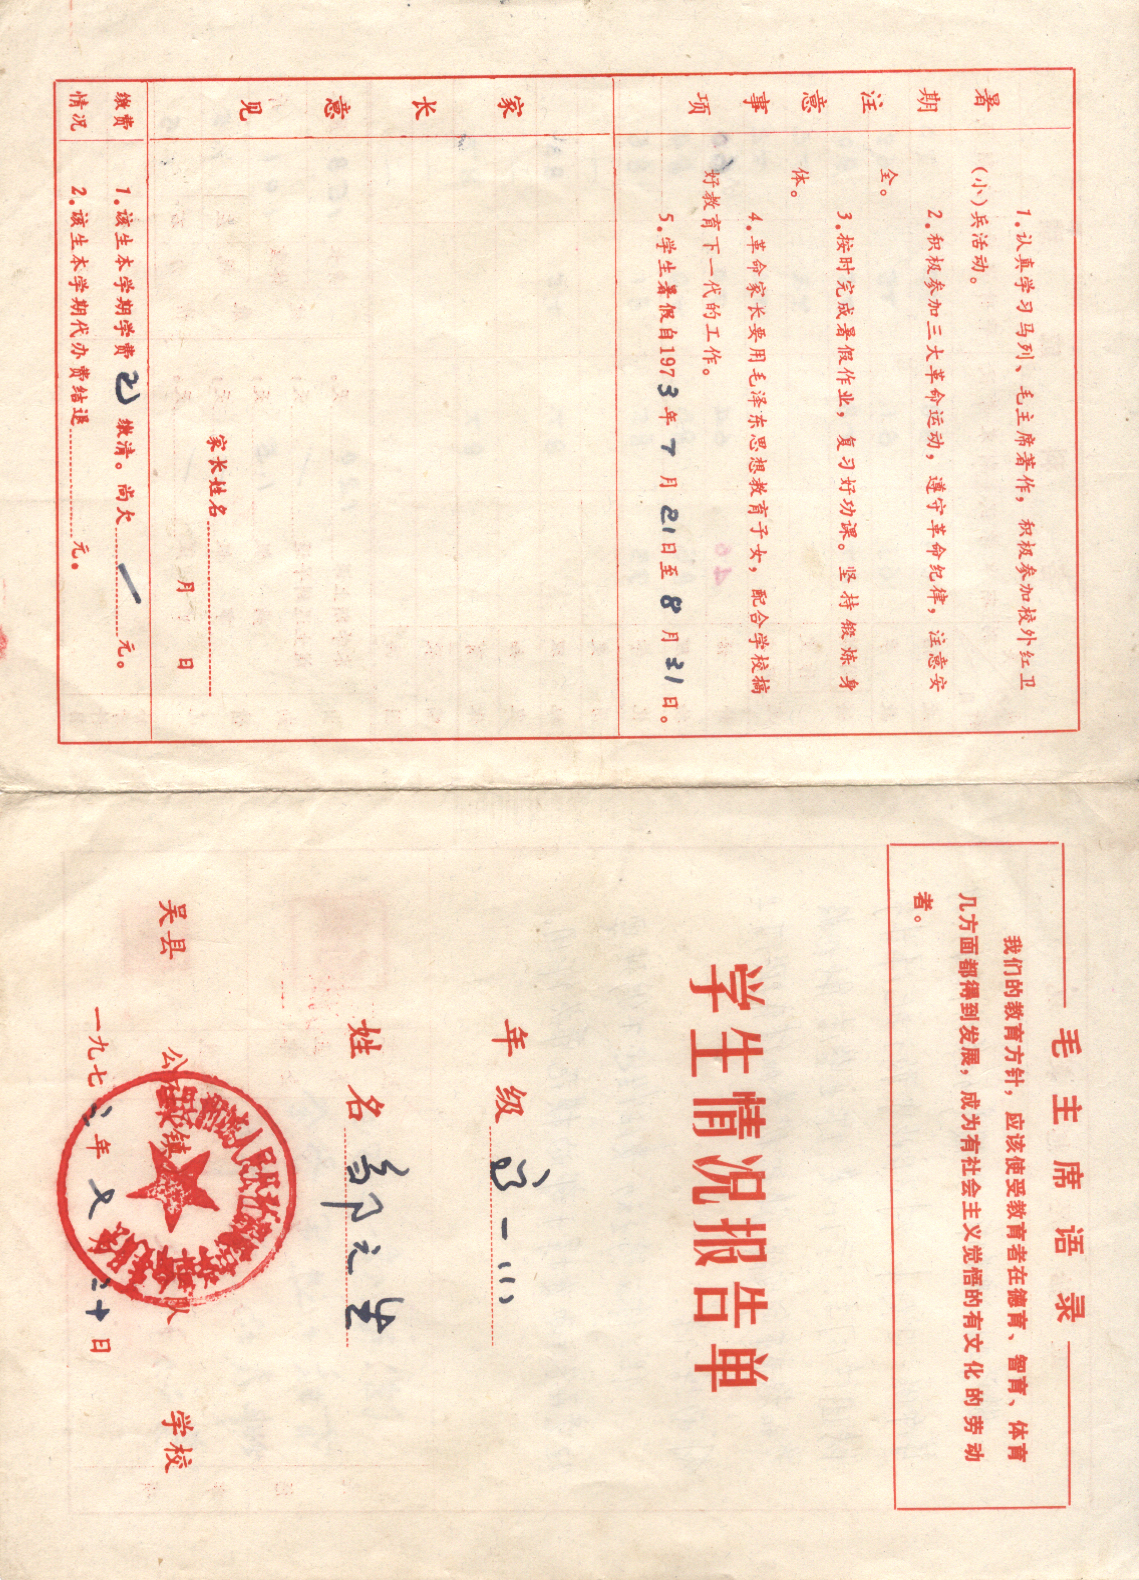 暑期注意事项
1.认真学习马列、毛主席著作，积极参加校外红卫
(小)兵活动。
2.积极参加三大革命运动，遵守革命纪律，注意安
全。
3.按时完成暑假作业，复习好功课。坚持锻炼身
体。
4.革命家长要用毛泽东思想教育子女，配合学校搞
好教育下一代的工作。
5.学生暑假自1973年7月21日至8月31日。
家长意见
家长姓名
月 日
缴费情况
1.该生本学期学费已缴清。尚欠 一 元。
2.该生本学期代办费结退 元。
毛主席语录
我们的教育方针，应该使受教育者在德育、智育、体育
几方面都得到发展，成为有社会主义觉悟的有文化的劳动
者。
学生情况报告单
年级 一
姓名
吴县 公社 镇 学校
一九七三年七 二十日